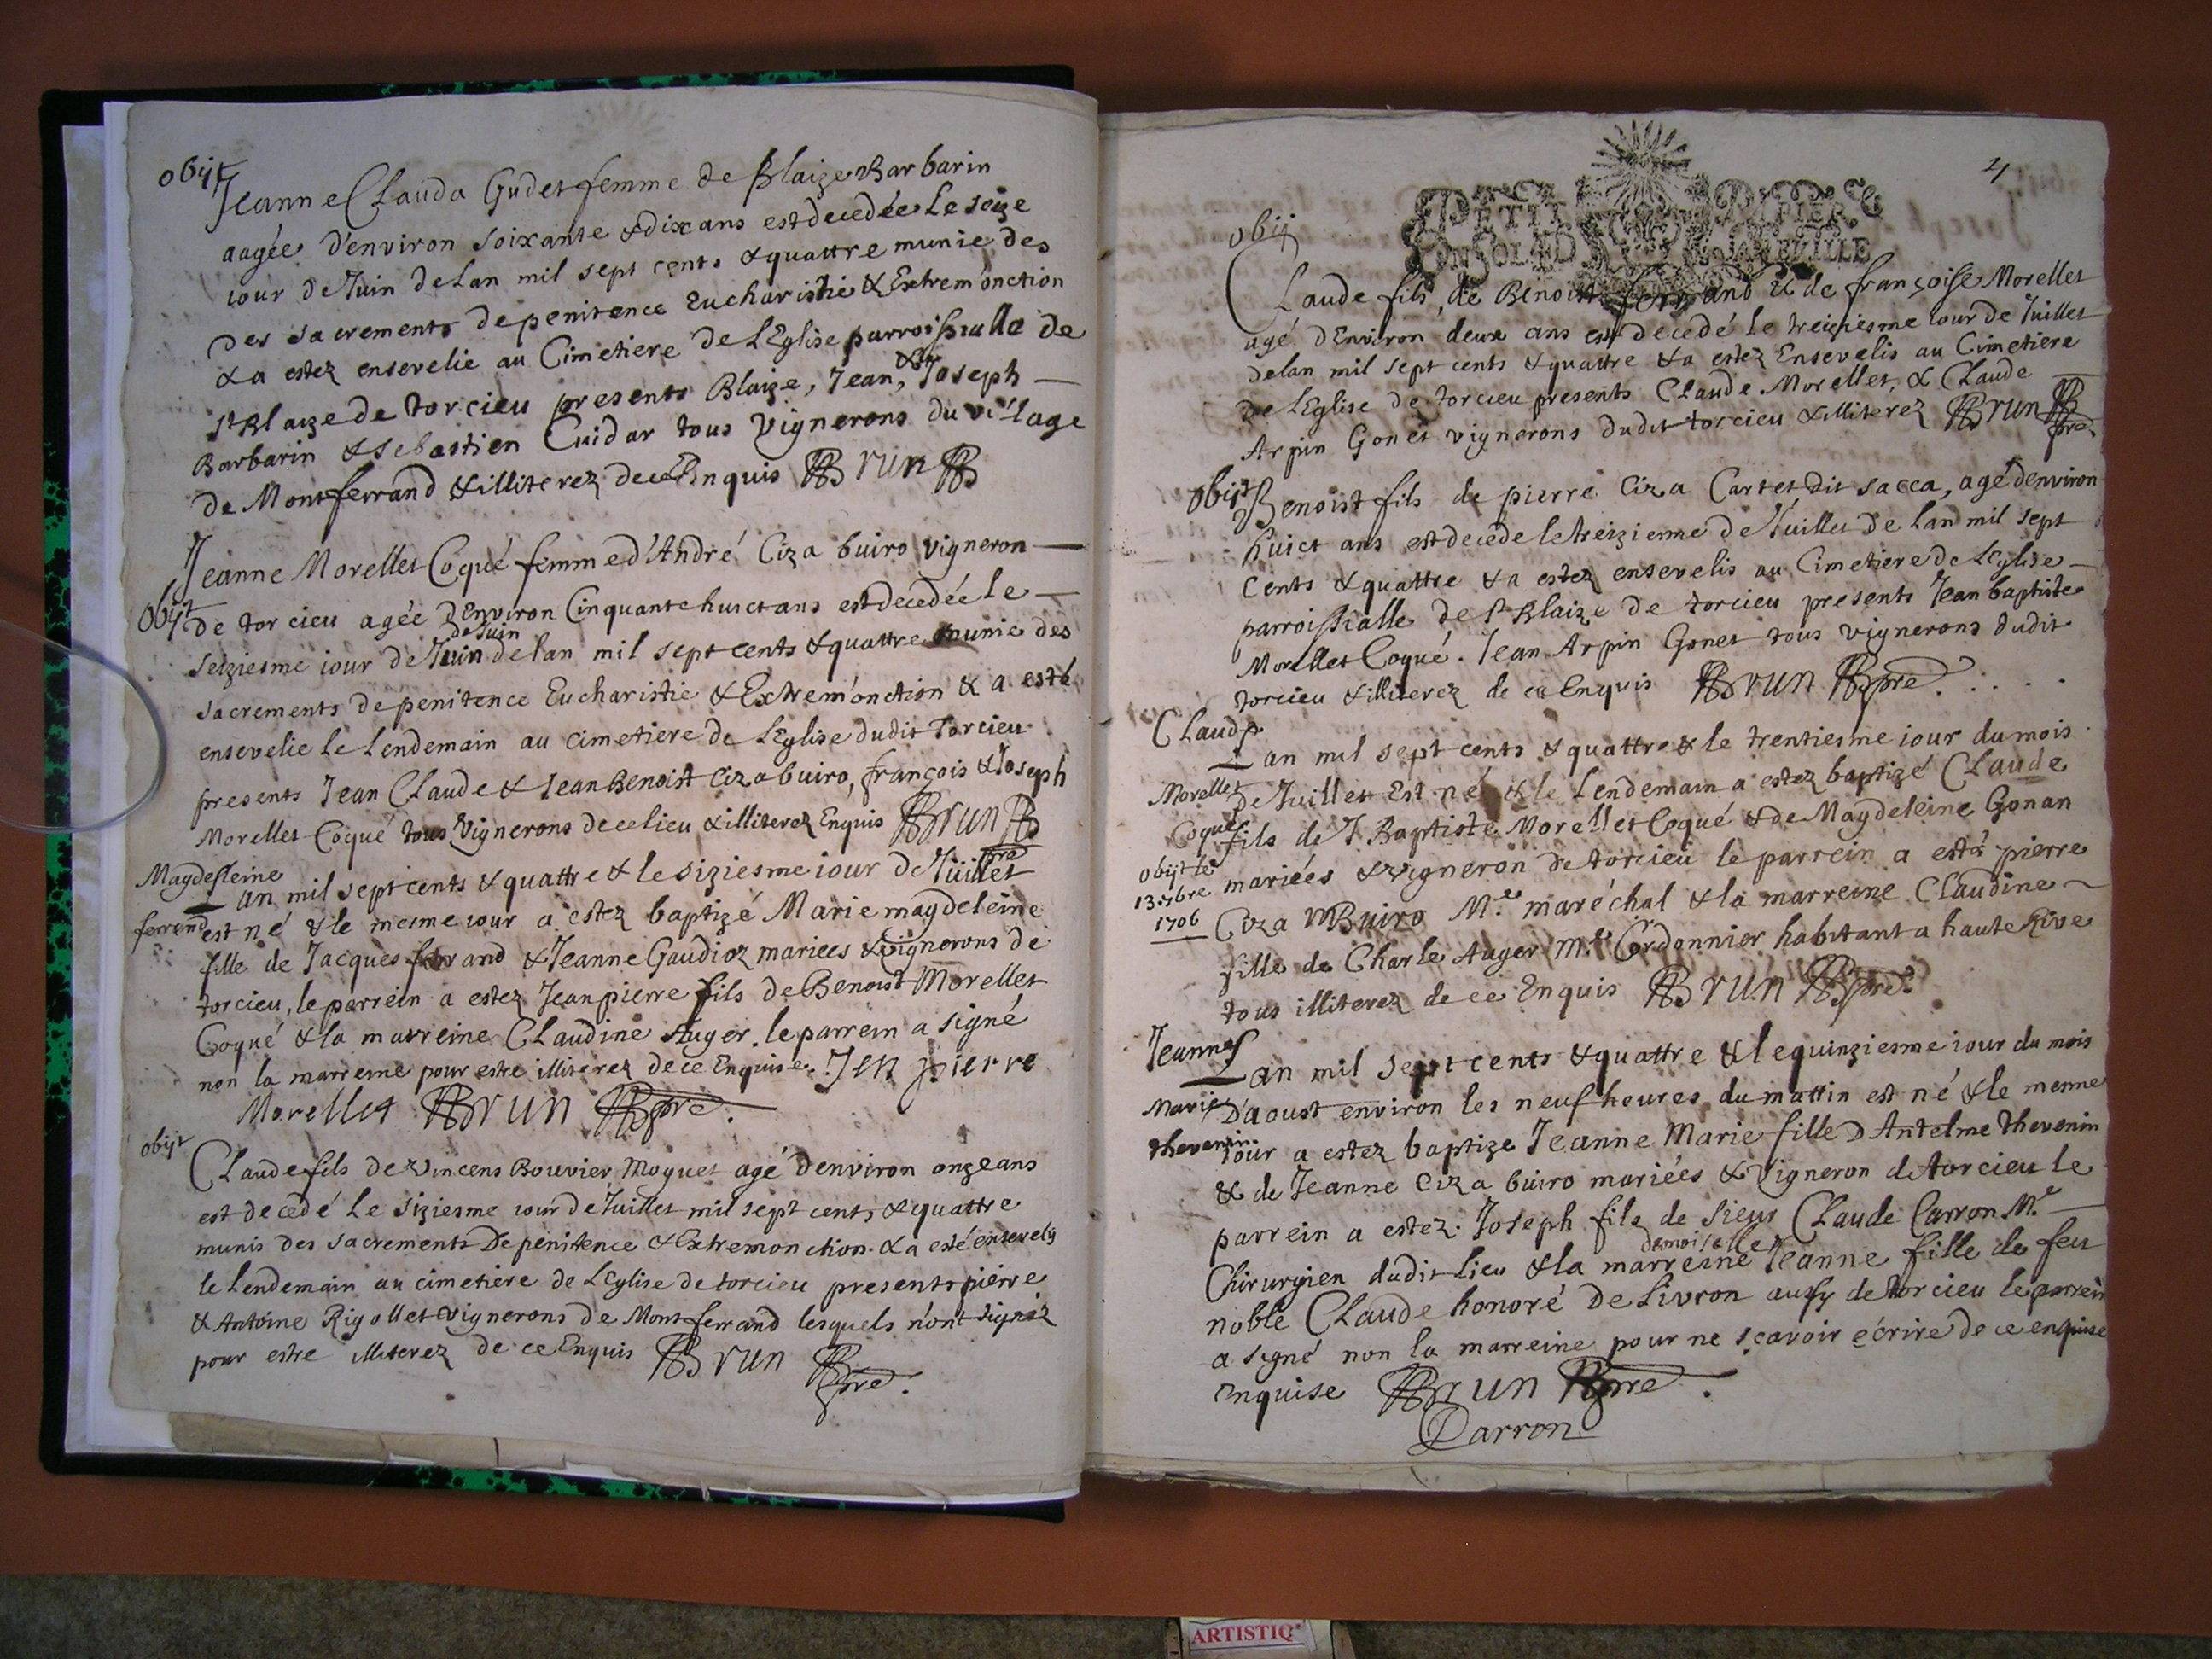 obijt
Jeanne Clauda Gudet femme de Blaize Barbarin
aagée d'environ soixante & dix ans est decedée le seize
iour de Juin de lan mil sept cents & quattre munie des
des sacrements de penitence Eucharistie & Extrem'onction
& a estez ensevelie au Cimetiere de L'Eglise parroissialle de
St Blaize de torcieu presents Blaize, Jean, & Joseph
Barbarin & sebastien Cuidar tous vignerons du village
de Montferrand & illiterez de ce Enquis Brun
Jeanne Morellet Coqué femme d'André Ciza buiro vigneron
obijt
de torcieu agée D'Environ Cinquante huict ans est decedée le
de Juin
seiziesme iour de Juin de lan mil sept cents & quattre munie des
sacrements de penitence Eucharistie & Extrem'onction & a esté
ensevelie le lendemain au cimetiere de L'Eglise dudit Torcieu
presents Jean Claude & Jean Benoist Ciza buiro, françois & Joseph
Morellet Coqué tous vignerons de ce lieu & illiterez Enquis Brun pre
Magdeleine
ferrand
Lan mil sept cents & quattre & le siziesme iour de Juillet
est né & le mesme iour a estez baptizé Marie magdeleine
fille de Jacques ferrand & Jeanne Gaudioz mariees & vignerons de
torcieu, le parrein a estez Jean pierre fils de Benoist Morellet
Coqué & la marreine Claudine Auger. le parrein a signé
non la marreine pour estre illiterez de ce Enquise. Jen pierre
Morellet Brun pre.
obijt
Claude fils de Vincens Bouvier Moquet agé d'environ onze ans
est decedé le siziesme iour de Juillet mil sept cents & quattre
munis des sacrements De penitence & Extremonction & a esté ensevely
le lendemain au cimetiere de L'Eglise de torcieu presents pierre
& Antoine Rigollet vignerons de Montferrand lesquels n'ont signéz
pour estre illiterez de ce Enquis Brun pre.
4
PETIT PAPIER
UN SOL QD LA FEVILLE
obijt
Claude fils de Benoist ferrand & de françoise Morellet
agé d'Environ deux ans est decedé le treiziesme iour de Juillet
de lan mil sept cents & quattre & a estez Ensevelis au Cimetiere
de l'Eglise de torcieu presents Claude Morellet, & Claude
Arpin Gonet vignerons dudit torcieu & illiterez Brun pre
obijt
Benoist fils de pierre Ciza Cartet dit sacca, agé denviron
huict ans est decedé le treizieme de Juillet de lan mil sept
Cents & quattre & a estez ensevelis au Cimetiere de L'Eglise
parroissialle de St Blaize de torcieu presents Jean baptiste
Morellet Coqué. Jean Arpin Gonet tous vignerons dudit
torcieu & illiterez de ce Enquis Brun pre.
Claude
Morellet
Coqué
obijt le
13. 7bre
1706
Lan mil sept cents & quattre & le trentiesme iour du mois
de Juillet Est né & le lendemain a estez baptizé Claude
fils de J. Baptiste Morellet Coqué & de Magdeleine Gonan
mariées & vigneron de torcieu le parrein a esté pierre
Ciza Buiro Me. maréchal & la marreine Claudine
fille de Charle Auger Me. Cordonnier habitant a haute Rive
tous illiterez de ce Enquis Brun pre.
Jeanne
Marie
thevenin
Lan mil sept cents & quattre & le quinziesme iour du mois
D'aoust environ les neuf heures du mattin est né & le mesme
iour a estez baptize Jeanne Marie fille D'Antelme thevenin
& de Jeanne Ciza buiro mariées & Vigneron de torcieu le
parrein a estez. Joseph fils de sieur Claude Carron Me.
demoiselle
Chirurgien dudit lieu & la marreine Jeanne fille de feu
noble Claude honoré De Livron aussy de torcieu le parrein
a signé non la marreine pour ne sçavoir écrire de ce enquise
enquise Brun pre.
Carron
ARTISTIQ